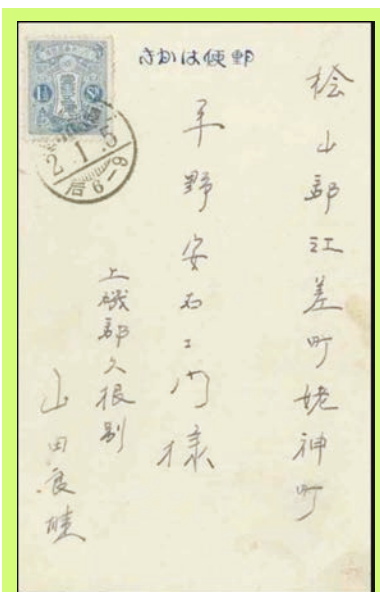 郵便はかき
桧山郡江差町姥神町
平野安右エ門様
上磯郡久根別
山田良
1½ Sn
2.1.5
后6-9